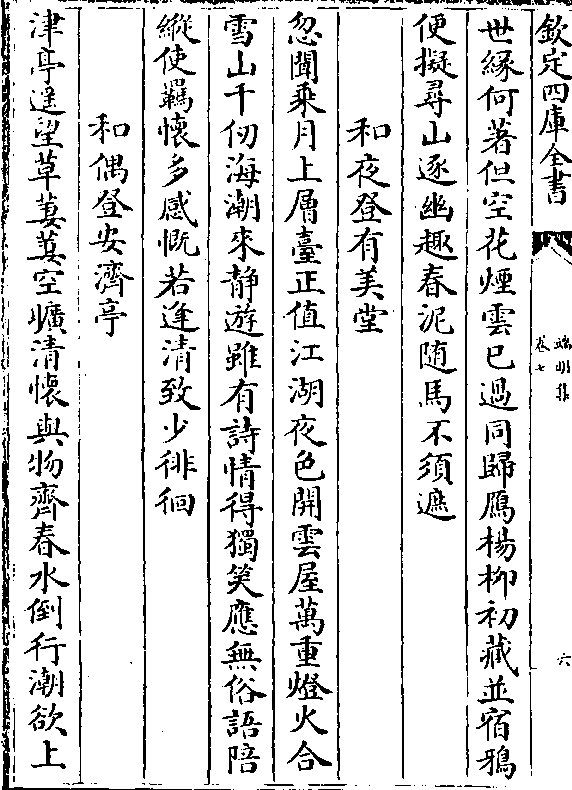 欽定四庫全書
端明集
卷七
六
世縁何著但空花煙雲已過同歸鴈楊柳初藏並宿鴉
便擬尋山逐幽趣春泥随馬不須遮
和夜登有美堂
忽聞乗月上層臺正值江湖夜色開雲屋萬重燈火合
雪山千仞海潮來静遊雖有詩情得獨笑應無俗語陪
縱使羈懷多感慨若逢清致少徘徊
和偶登安濟亭
津亭遥望草萋萋空曠清懷與物齊春水倒行潮欲上